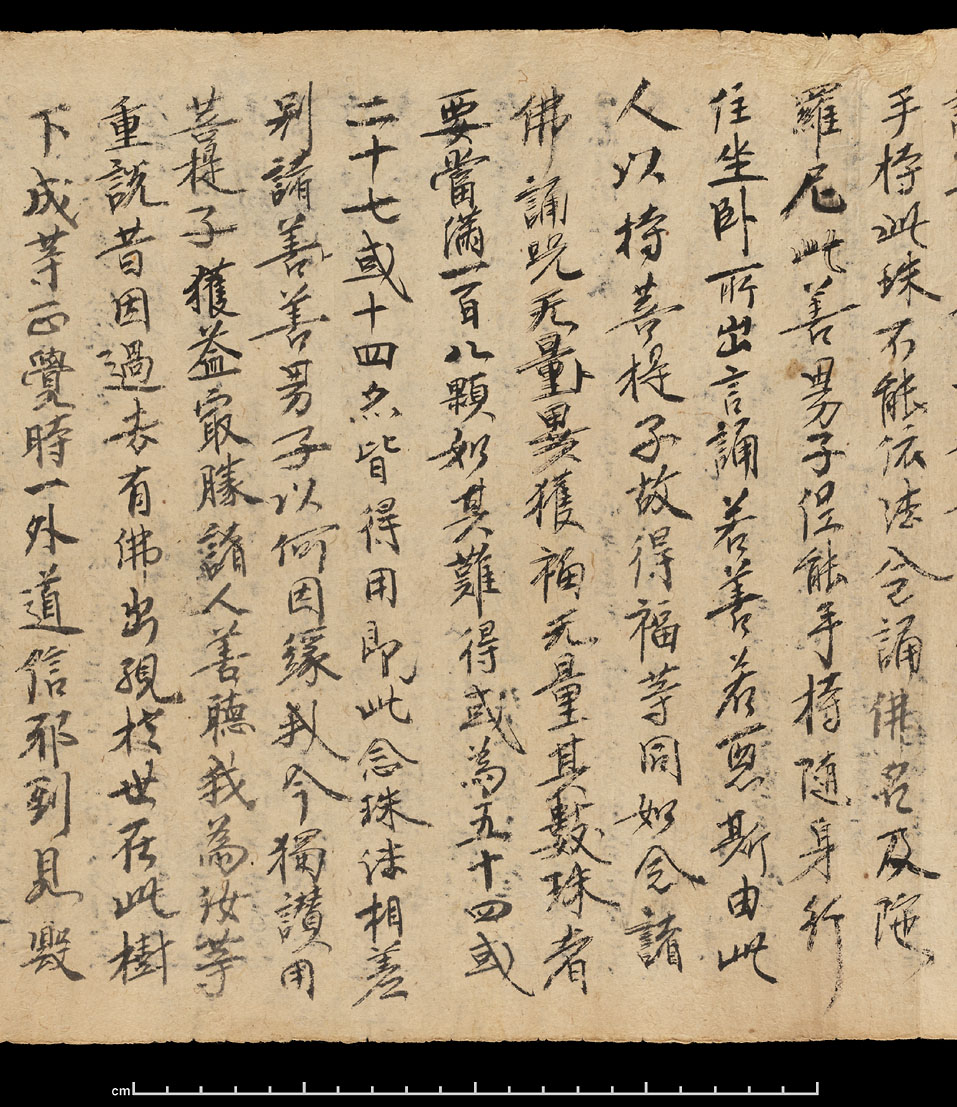 手持此珠不能依法念誦佛名及陁
羅尼此善男子但能手持隨身行
住坐卧所出言誦若善若惡斯由此
人以持菩提子故得福等同如念諸
佛誦呪无量異獲福无量其數珠者
要當滿一百八顆如其難得或為五十四或
二十七或十四亦皆得用即此念珠法相差
别諸善善男子以何因緣我今獨讃用
菩提子獲益㝡勝諸人善聽我為汝等
重說昔因過去有佛出現於世在此樹
下成等正覺時一外道信邪到見毀
cm